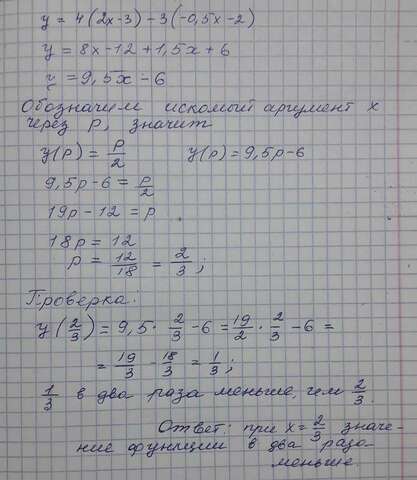 y = 4(2x-3) - 3(-0,5x-2)
y = 8x - 12 + 1,5x + 6
y = 9,5x - 6
Обозначим искомый аргумент x
через p, значит
y(p) = p/2    y(p) = 9,5p - 6
9,5p - 6 = p/2
19p - 12 = p
18p = 12
p = 12/18 = 2/3;
Проверка:
y(2/3) = 9,5 · 2/3 - 6 = 19/2 · 2/3 - 6 =
= 19/3 - 18/3 = 1/3;
1/3 в два раза меньше, чем 2/3.
Ответ: при x = 2/3 значе-
ние функции в два раза
меньше.